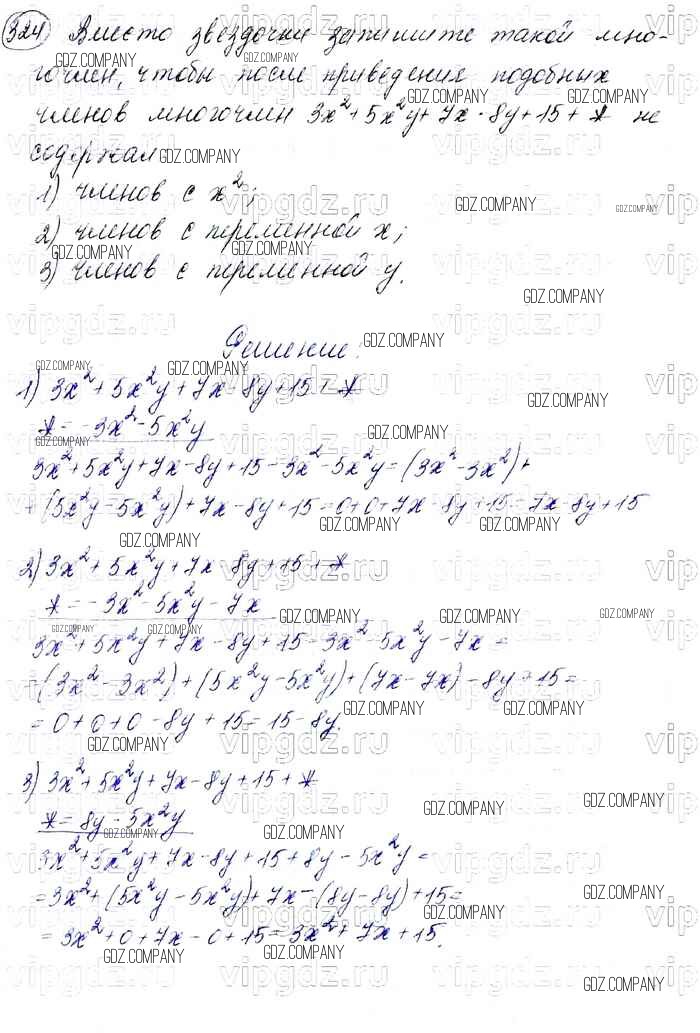 324 Вместо звездочки запишите такой мно-
гочлен, чтобы после приведения подобных
членов многочлен 3x² + 5x²y + 7x - 8y + 15 + * не
содержал
1) членов с x²;
2) членов с переменной x;
3) членов с переменной y.
Решение:
1) 3x² + 5x²y + 7x - 8y + 15 + *
* = -3x² - 5x²y
3x² + 5x²y + 7x - 8y + 15 - 3x² - 5x²y = (3x² - 3x²) +
+ (5x²y - 5x²y) + 7x - 8y + 15 = 0 + 0 + 7x - 8y + 15 = 7x - 8y + 15
2) 3x² + 5x²y + 7x - 8y + 15 + *
* = -3x² - 5x²y - 7x
3x² + 5x²y + 7x - 8y + 15 - 3x² - 5x²y - 7x =
= (3x² - 3x²) + (5x²y - 5x²y) + (7x - 7x) - 8y + 15 =
= 0 + 0 + 0 - 8y + 15 = 15 - 8y.
3) 3x² + 5x²y + 7x - 8y + 15 + *
* = 8y - 5x²y
3x² + 5x²y + 7x - 8y + 15 + 8y - 5x²y =
= 3x² + (5x²y - 5x²y) + 7x - (8y - 8y) + 15 =
= 3x² + 0 + 7x - 0 + 15 = 3x² + 7x + 15.